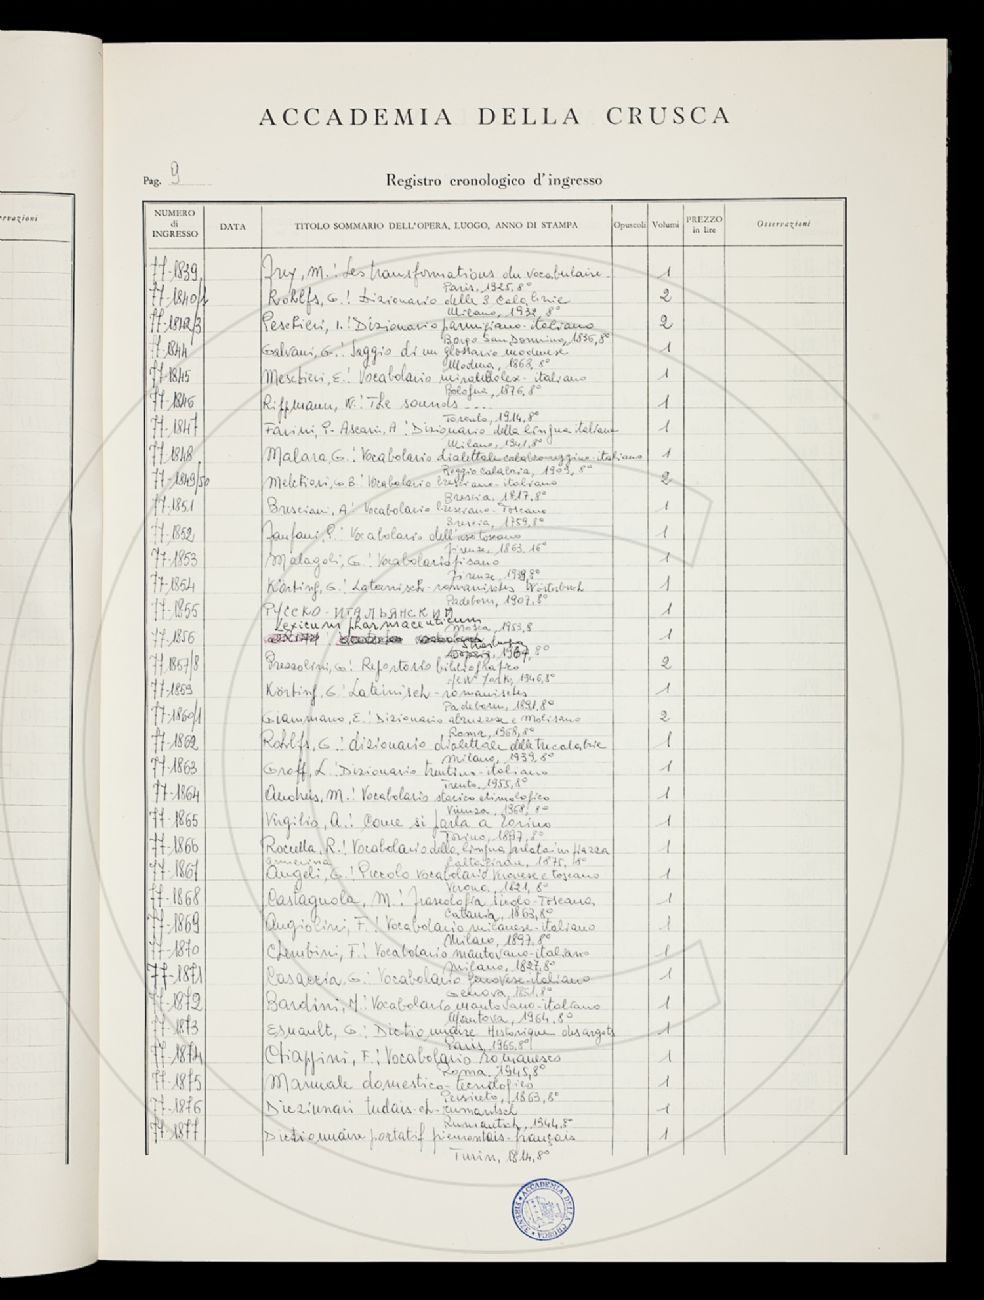 ervazioni
ACCADEMIA DELLA CRUSCA
Pag. 9
Registro cronologico d'ingresso
NUMERO di INGRESSO DATA TITOLO SOMMARIO DELL'OPERA, LUOGO, ANNO DI STAMPA Opuscoli Volumi PREZZO in lire Osservazioni
77-1839 Frey, M.: Les transformations du vocabulaire 1
Paris, 1925, 8°
77-1840/1 Rohlfs, G.: Dizionario delle 3 Calabrie 2
Milano, 1932, 8°
77-1842/3 Peschieri, I.: Dizionario parmigiano-italiano 2
Borgo San Donnino, 1836, 8°
77-1844 Galvani, G.: Saggio di un glossario modenese 1
Modena, 1868, 8°
77-1845 Meschieri, E.: Vocabolario mirandolese-italiano 1
Bologna, 1876, 8°
77-1846 Rippmann, W.: The sounds .... 1
Toronto, 1914, 8°
77-1847 Farini, P.- Ascari, A.: Dizionario della lingua italiana 1
Milano, 1941, 8°
77-1848 Malara, G.: Vocabolario dialettale calabro-reggino-italiano 1
Reggio Calabria, 1909, 8°
77-1849/50 Melchiori, G.B.: Vocabolario bresciano-italiano 2
Brescia, 1817, 8°
77-1851 Bresciani, A.: Vocabolario bresciano-Toscano 1
Brescia, 1759, 8°
77-1852 Fanfani, P.: Vocabolario dell'uso toscano 1
Firenze, 1863, 16°
77-1853 Malagoli, G.: Vocabolario pisano 1
Firenze, 1939, 8°
77-1854 Körting, G.: Lateinisch-romanisches Wörterbuch 1
Padeborn, 1907, 8°
77-1855 РУССКО-ИТАЛЬЯНСКИЙ 1
Mosca, 1953, 8
77-1856 Lexicum pharmaceuticum 1
1967, 8°
77-1857/8 Prezzolini, G.: Repertorio bibliografico 2
New York, 1946, 8°
77-1859 Körting, G.: Lateinisch-romanisches 1
Padeborn, 1891, 8°
77-1860/1 Giammarco, E.: Dizionario abruzzese e Molisano 2
Roma, 1968, 8°
77-1862 Rohlfs, G.: dizionario dialettale delle tre calabrie 1
Milano, 1939, 8°
77-1863 Groff, L.: Dizionario trentino-italiano 1
Trento, 1955, 8°
77-1864 Andreis, M.: Vocabolario storico etimologico 1
1968, 8°
77-1865 Virgilio, A.: Come si parla a Torino 1
Torino, 1897, 8°
77-1866 Roccella, R.: Vocabolario della lingua parlata in Piazza 1
Armerina Caltagirone, 1875, 8°
77-1867 Angeli, G.: Piccolo vocabolario Veronese e toscano 1
Verona, 1821, 8°
77-1868 Castagnola, M.: fraseologia siculo-Toscana 1
Catania, 1863, 8°
77-1869 Angiolini, F.: Vocabolario milanese-italiano 1
Milano, 1897, 8°
77-1870 Cherubini, F.: Vocabolario mantovano-italiano 1
Milano, 1827, 8°
77-1871 Casaccia, G.: Vocabolario genovese-italiano 1
Genova, 1851, 8°
77-1872 Bardini, M.: Vocabolario mantovano-italiano 1
Mantova, 1964, 8°
77-1873 Esnault, G.: Dictionnaire Historique des argots 1
Paris, 1965, 8°
77-1874 Chiappini, F.: Vocabolario romanesco 1
Roma, 1945, 8°
77-1875 Manuale domestico-tecnologico 1
Persiceto, 1863, 8°
77-1876 Dicziunari tudais-ch-rumantsch 1
1944, 8°
77-1877 Dictionnaire portatif piemontais-français 1
Turin, 1814, 8°
ACCADEMIA DELLA CRUSCA FIRENZE